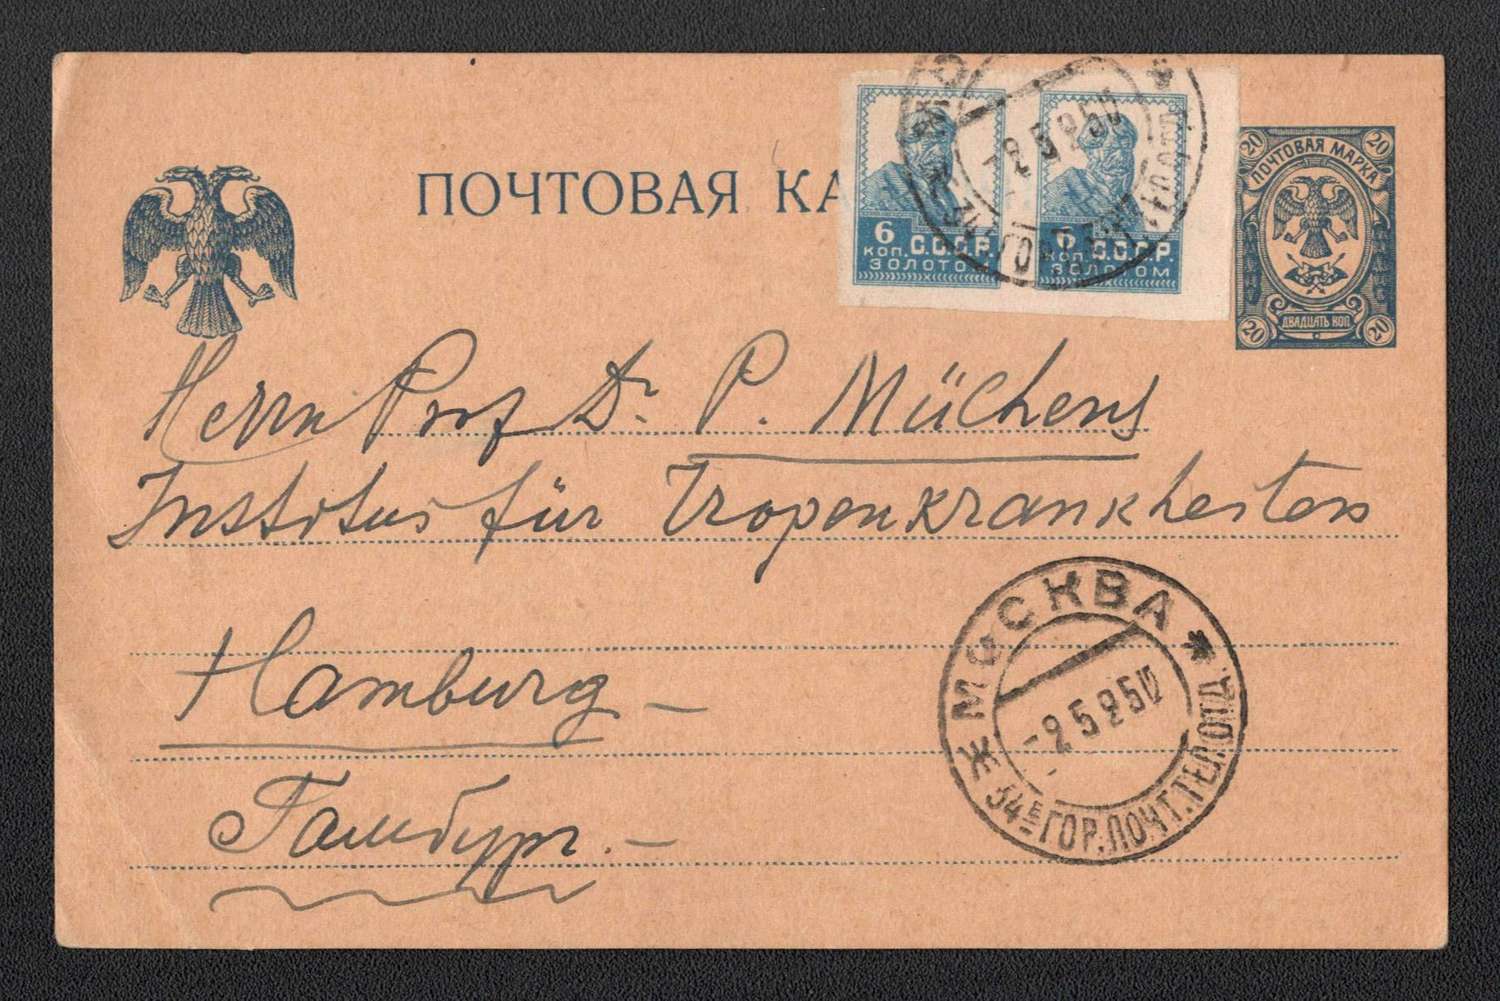 ПОЧТОВАЯ КА
6 КОП. С.С.С.Р.
ЗОЛОТОМ
КОП. С.С.С.Р.
ЗОЛОТОМ
20 20
ПОЧТОВАЯ МАРКА
ДВАДЦАТЬ КОП
20 20
Herrn Prof Dr. P. Mühlens
Institus für Tropenkrankheiten
Hamburg –
Гамбург. –
МОСКВА
-2 5 25
34Е ГОР. ПОЧТ. ТЕЛ. ОТД.